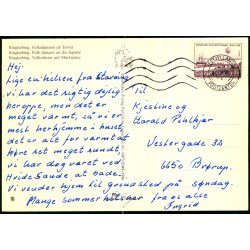 Ringkøbing. Folkedansen på Torvet
Ringkøbing. Folk dancers on the Square
Ringkøbing. Volkstänzer auf Marktplatz
Hej.
Lige en hilsen fra Stavning
vi har det rigtig dejlig
heroppe, men det er
meget varmt, så vi er
mest herhjemme i huset
det er alt for varmt at
køre ret meget rundt,
vi har dog været ved
Hvide Sande at bade,
Vi vender hjem til grundshed på søndag.
Mange sommer hilsner fra os alle
Ingrid
Til
Kjestine og
Harald
Vestergade 32
6650 Brørup.